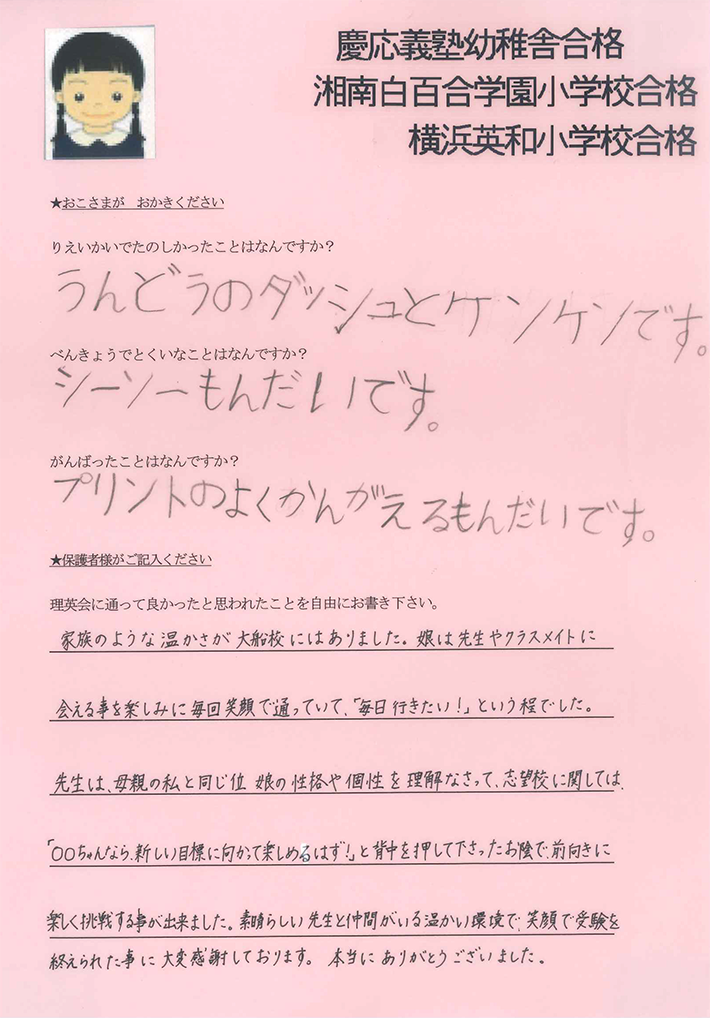 慶応義塾幼稚舎合格
湘南白百合学園小学校合格
横浜英和小学校合格
★おこさまが　おかきください
りえいかいでたのしかったことはなんですか？
うんどうのダッシュとケンケンです。
べんきょうでとくいなことはなんですか？
シーソーもんだいです。
がんばったことはなんですか？
プリントのよくかんがえるもんだいです。
★保護者様がご記入ください
理英会に通って良かったと思われたことを自由にお書き下さい。
家族のような温かさが大船校にはありました。娘は先生やクラスメイトに
会える事を楽しみに毎回笑顔で通っていて、「毎日行きたい！」という程でした。
先生は、母親の私と同じ位 娘の性格や個性を理解なさって、志望校に関しては、
「〇〇ちゃんなら、新しい目標に向かって楽しめるはず！」と背中を押して下さったお陰で、前向きに
楽しく挑戦する事が出来ました。素晴らしい先生と仲間がいる温かい環境で、笑顔で受験を
終えられた事に大変感謝しております。 本当にありがとうございました。